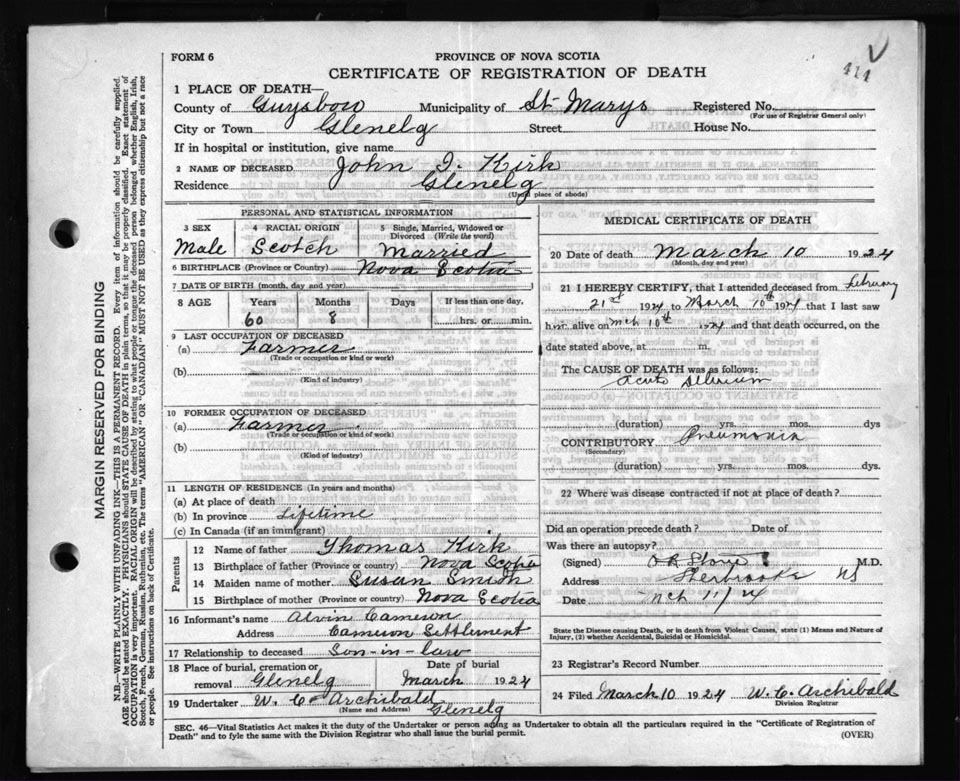 FORM 6
PROVINCE OF NOVA SCOTIA
414
CERTIFICATE OF REGISTRATION OF DEATH
1 PLACE OF DEATH—
County of Guysboro Municipality of St. Marys Registered No.
(For use of Registrar General only)
City or Town Glenelg Street House No.
If in hospital or institution, give name
2 NAME OF DECEASED John I. Kirk
Residence Glenelg
(Usual place of abode)
PERSONAL AND STATISTICAL INFORMATION
3 SEX 4 RACIAL ORIGIN 5 Single, Married, Widowed or Divorced (Write the word)
Male Scotch Married
6 BIRTHPLACE (Province or Country) Nova Scotia
7 DATE OF BIRTH (month, day and year)
8 AGE Years Months Days If less than one day,
60 8 hrs. or min.
9 LAST OCCUPATION OF DECEASED
(a) Farmer
(Trade or occupation or kind or work)
(b)
(Kind of industry)
10 FORMER OCCUPATION OF DECEASED
(a) Farmer
(Trade or occupation or kind of work)
(b)
(Kind of industry)
11 LENGTH OF RESIDENCE (In years and months)
(a) At place of death
(b) In province Lifetime
(c) In Canada (if an immigrant)
Parents
12 Name of father Thomas Kirk
13 Birthplace of father (Province or country) Nova Scotia
14 Maiden name of mother Susan Smith
15 Birthplace of mother (Province or country) Nova Scotia
16 Informant's name Alvin Cameron
Address Cameron Settlement
17 Relationship to deceased Son-in-law
18 Place of burial, cremation or Date of burial
removal Glenelg March 1924
19 Undertaker W. C. Archibald
(Name and Address) Glenelg
MEDICAL CERTIFICATE OF DEATH
20 Date of death March 10 1924
(Month, day and year)
21 I HEREBY CERTIFY, that I attended deceased from February
21st 1924 to March 10th 1924 that I last saw
him alive on Mch 10th 1924 and that death occurred, on the
date stated above, at m.
The CAUSE OF DEATH was as follows:
Acute Delirium
(duration) yrs. mos. dys
CONTRIBUTORY Pneumonia
(Secondary)
(duration) yrs. mos. dys.
22 Where was disease contracted if not at place of death?
Did an operation precede death? Date of
Was there an autopsy?
(Signed) M.D.
Address Sherbrooke NS
Date Mch 11/24
State the Disease causing Death, or in death from Violent Causes, state (1) Means and Nature of
Injury, (2) whether Accidental, Suicidal or Homicidal.
23 Registrar's Record Number
24 Filed March 10 1924 W. C. Archibald
Division Registrar
SEC. 46—Vital Statistics Act makes it the duty of the Undertaker or person acting as Undertaker to obtain all the particulars required in the "Certificate of Registration of
Death" and to fyle the same with the Division Registrar who shall issue the burial permit. (OVER)
MARGIN RESERVED FOR BINDING
N.B.—WRITE PLAINLY WITH UNFADING INK—THIS IS A PERMANENT RECORD. Every item of information should be carefully supplied.
AGE should be stated EXACTLY. PHYSICIANS should STATE CAUSE OF DEATH in plain terms, so that it may be properly classified. Exact statement of
OCCUPATION is very important. RACIAL ORIGIN will be described by stating to what people or tongue the deceased person belonged whether English, Irish,
Scotch, French, German, Russian, Ruthenian, etc. The terms "AMERICAN" OR "CANADIAN" MUST NOT BE USED as they express citizenship but not a race
or people. See instructions on back of Certificate.